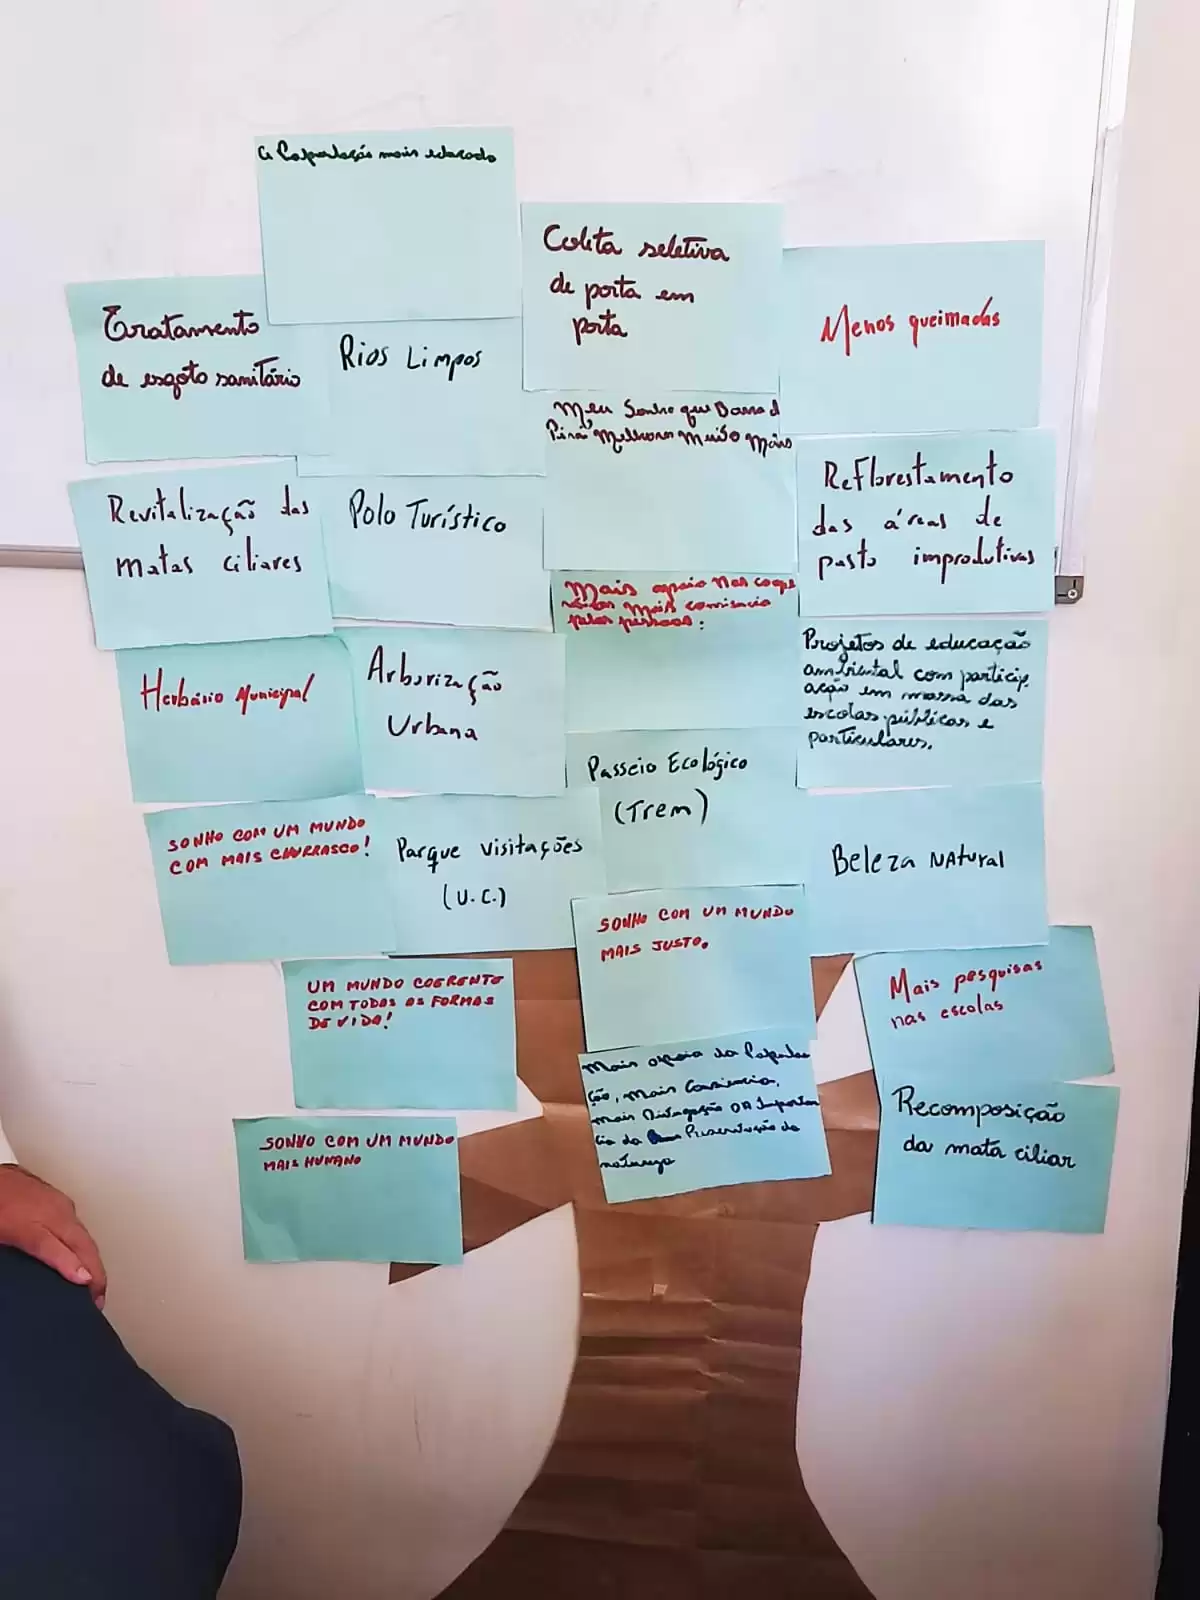 a População mais educado
Coleta seletiva
de porta em
porta
Menos queimadas
Tratamento
de esgoto sanitário
Rios Limpos
Meu Sonho que Barra d
Piraí Melhorar Muito Mais
Reflorestamento
das áreas de
pasto improdutivas
Revitalização das
matas ciliares
Polo Turístico
Mais apoio nas
mais
pelas pessoas:
Projetos de educação
ambiental com particip.
ação em massa das
escolas públicas e
particulares.
Herbário Municipal
Arborização
Urbana
Passeio Ecológico
(Trem)
SONHO COM UM MUNDO
COM MAIS CHURRASCO!
Parque visitações
(U.C.)
Beleza Natural
SONHO COM UM MUNDO
MAIS JUSTO.
UM MUNDO COERENTE
COM TODAS AS FORMAS
DE VIDA!
Mais pesquisas
nas escolas
Mais apoio da Popula
ção, mais Consiencia,
mais Divugação DA Importan
cia da Preservação da
natureza
Recomposição
da mata ciliar
SONHO COM UM MUNDO
MAIS HUMANO